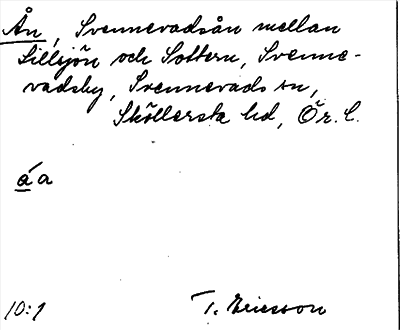 Ån, Svennevadsån mellan
Sillsjön och Sottern, Svenne-
vadsby, Svennevads sn,
Sköllersta hd, Ör. l.
áa
10:1 T. Ericsson